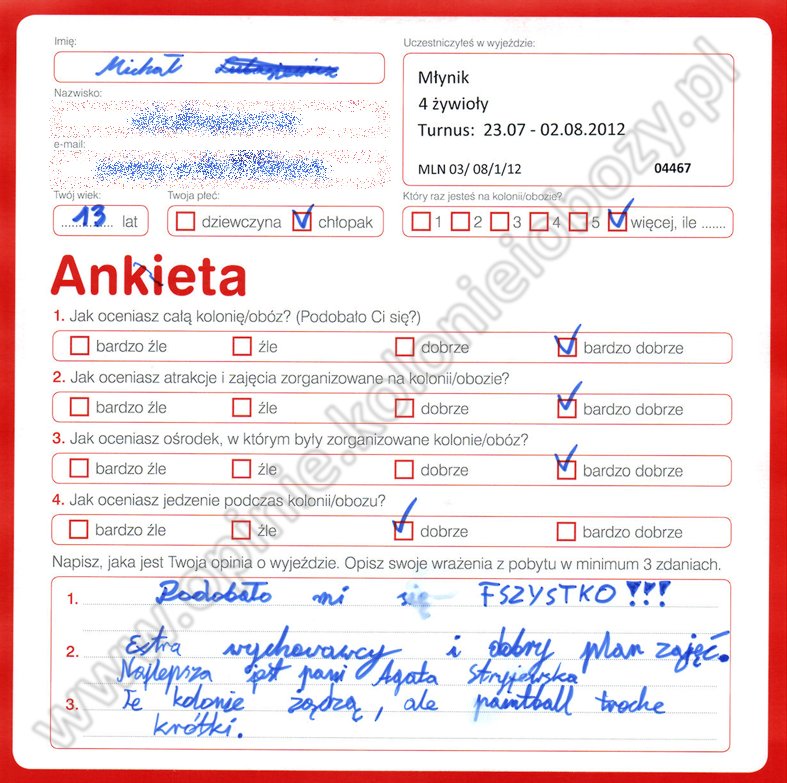 Imię:
Michał
Uczestniczyłeś w wyjeździe:
Młynik
4 żywioły
Turnus: 23.07 - 02.08.2012
MLN 03/ 08/1/12 04467
Nazwisko:
e-mail:
Twój wiek:
13 lat
Twoja płeć:
dziewczyna chłopak
Który raz jesteś na kolonii/obozie?
1 2 3 4 5 więcej, ile .......
Ankieta
1. Jak oceniasz całą kolonię/obóz? (Podobało Ci się?)
bardzo źle źle dobrze bardzo dobrze
2. Jak oceniasz atrakcje i zajęcia zorganizowane na kolonii/obozie?
bardzo źle źle dobrze bardzo dobrze
3. Jak oceniasz ośrodek, w którym były zorganizowane kolonie/obóz?
bardzo źle źle dobrze bardzo dobrze
4. Jak oceniasz jedzenie podczas kolonii/obozu?
bardzo źle źle dobrze bardzo dobrze
Napisz, jaka jest Twoja opinia o wyjeździe. Opisz swoje wrażenia z pobytu w minimum 3 zdaniach.
1. Podobało mi się FSZYSTKO !!!
2. Estra wychowawcy i dobry plan zajęć.
Najlepsza jest pani Agata Stryjewska
3. Te kolonie żądzą, ale paintball troche
krótki.
www.opinie.kolonieiobozy.pl